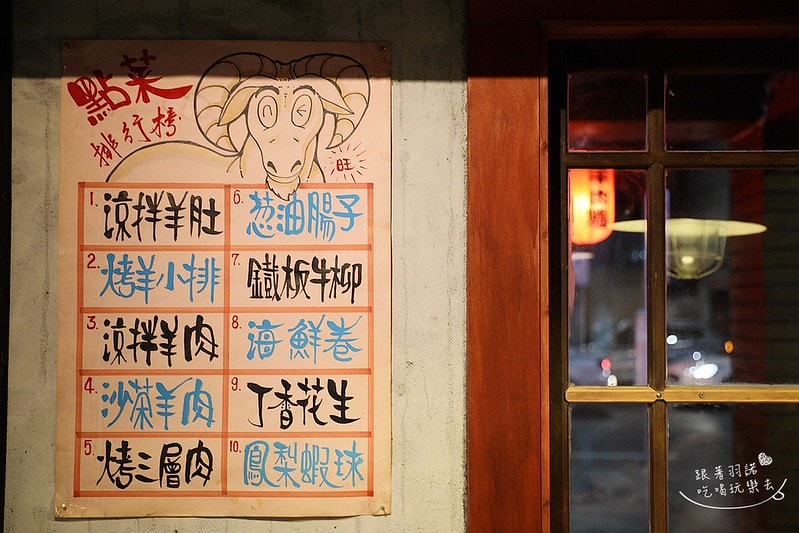 點菜
排行榜
旺
1. 涼拌羊肚
2. 烤羊小排
3. 涼拌羊肉
4. 沙茶羊肉
5. 烤三層肉
6. 葱油腸子
7. 鐵板牛柳
8. 海鮮卷
9. 丁香花生
10. 鳳梨蝦球
跟著羽諾
吃喝玩樂去